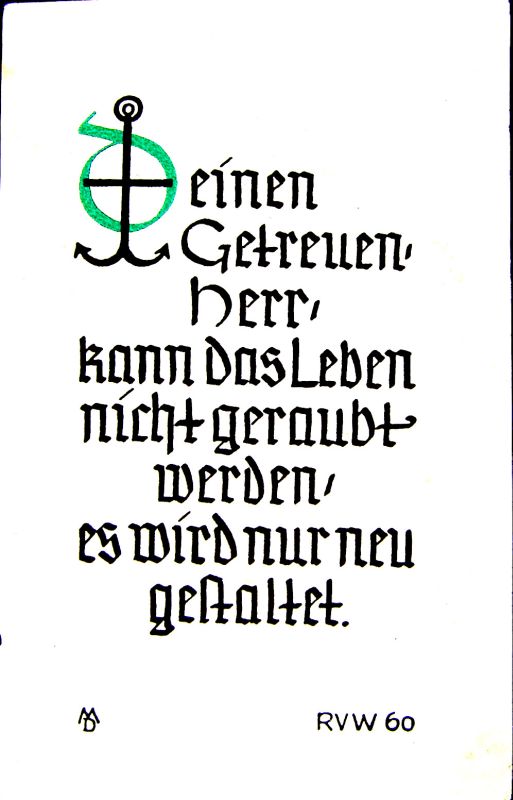 Deinen
Getreuen,
Herr,
kann das Leben
nicht geraubt
werden,
es wird nur neu
gestaltet.
MD RVW 60